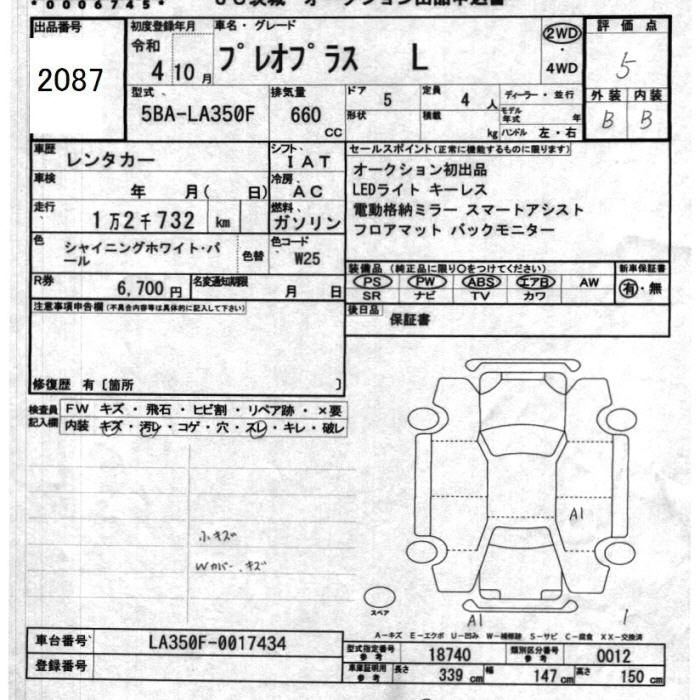 ・0006745・
出品番号 初度登録年月 車名・グレード 評価点
2087 令和 4 10月 プレオプラス L 2WD・4WD 5
型式 排気量 ドア 定員 ディーラー・並行 外装 内装
5BA-LA350F 660 CC 5 4人 モデル年式 年 B B
形状 積載 kg ハンドル 左・右
車歴 レンタカー シフト IAT セールスポイント(正常に機能するものに限ります)
車検 年 月( 日) 冷房 AC オークション初出品
LEDライト キーレス
走行 1万2千732 km 燃料 ガソリン 電動格納ミラー スマートアシスト
フロアマット バックモニター
色 シャイニングホワイト・パール 色替 色コード W25
装備品(純正品に限り○をつけてください) 新車保証書
R券 6,700円 名変通知期限 月 日 PS PW ABS エアB AW 有・無
SR ナビ TV カワ
注意事項申告欄(不具合内容等は具体的に記入して下さい) 後日品
保証書
修復歴 有〔箇所 〕
検査員記入欄 FW キズ・飛石・ヒビ割・リペア跡・×要
内装 キズ・汚レ・コゲ・穴・スレ・キレ・破レ
A1
小キズ
Wカバー、キズ
スペア
A1 1
A-キズ E-エクボ U-凹み W-補修跡 S-サビ C-腐食 XX-交換済
車台番号 LA350F-0017434 型式指定番号 参考 18740 類別区分番号 参考 0012
登録番号 車庫証明用 参考 長さ 339 cm 幅 147 cm 高さ 150 cm